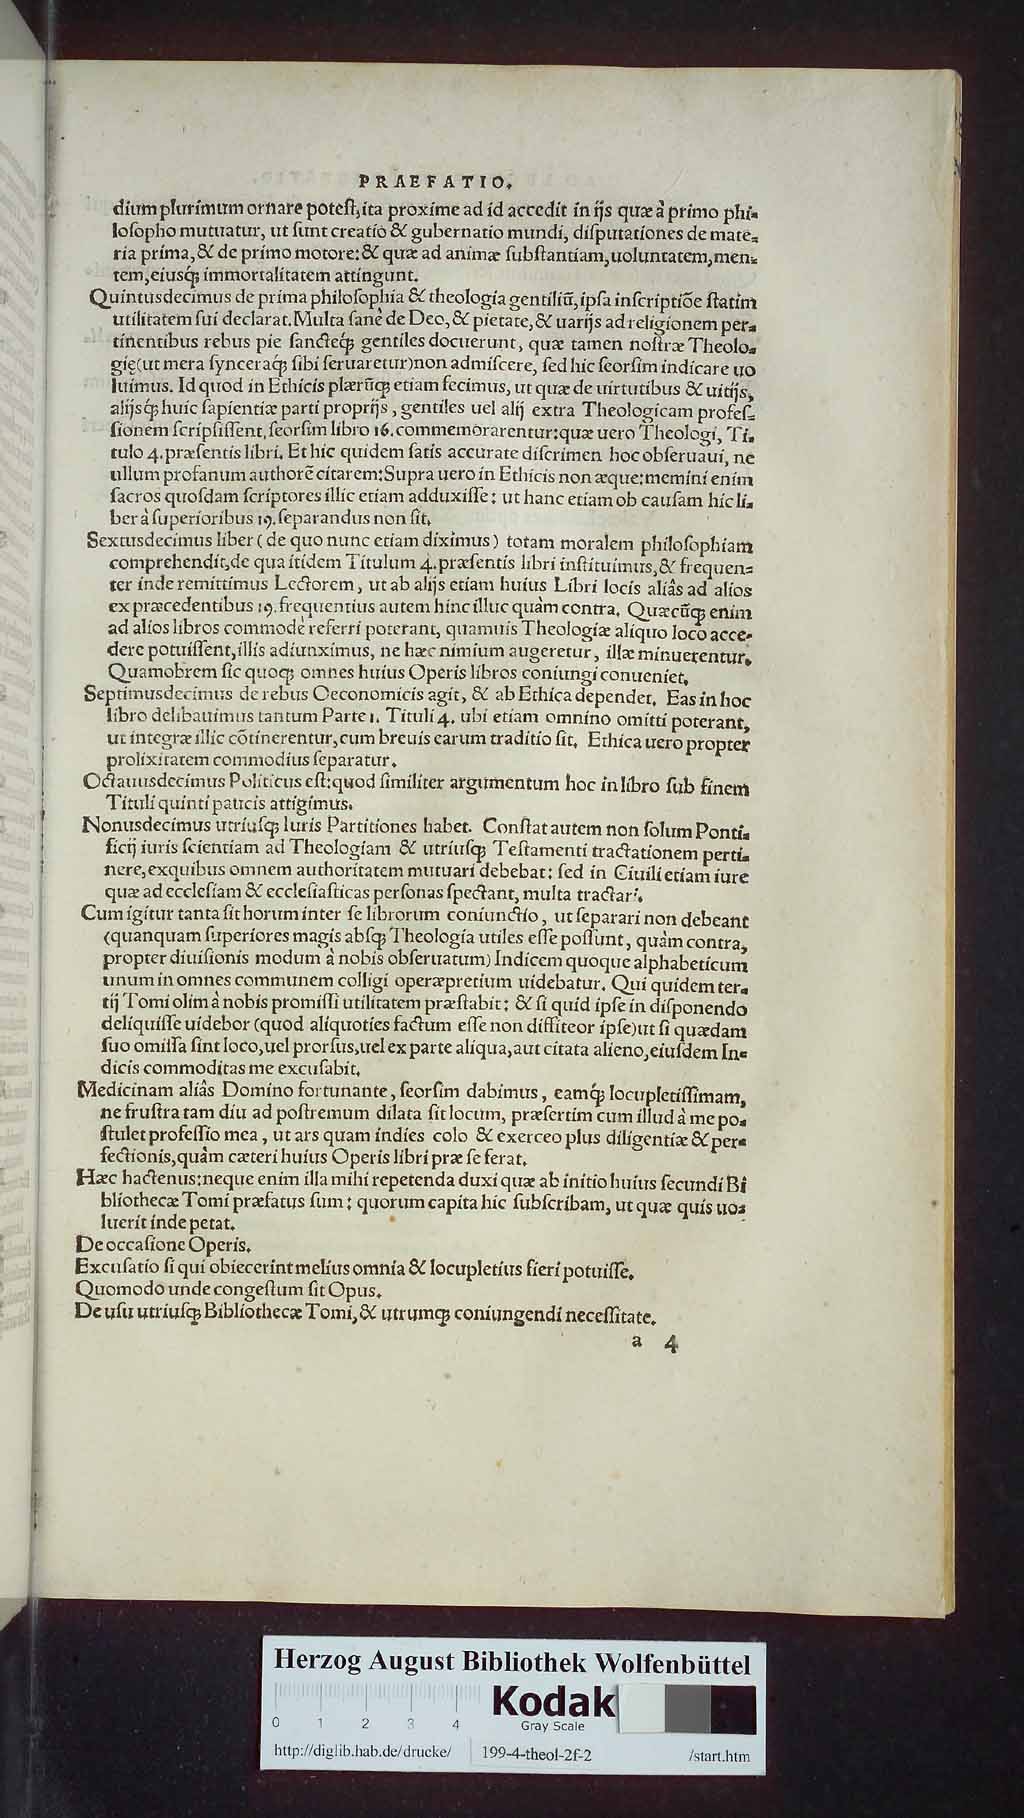 PRAEFATIO.
dium plurimum ornare potest, ita proxime ad id accedit in ijs quæ à primo phi-
losopho mutuatur, ut sunt creatio & gubernatio mundi, disputationes de mate-
ria prima, & de primo motore: & quæ ad animæ substantiam, uoluntatem, men-
tem, eiusq́; immortalitatem attingunt.
Quintusdecimus de prima philosophia & theologia gentiliũ, ipsa inscriptiõe statim
utilitatem sui declarat. Multa sanè de Deo, & pietate, & uarijs ad religionem per-
tinentibus rebus pie sancteq́; gentiles docuerunt, quæ tamen nostræ Theolo-
gię (ut mera synceraq́; sibi seruaretur) non admiscere, sed hic seorsim indicare uo
luimus. Id quod in Ethicis plærũq; etiam fecimus, ut quæ de uirtutibus & uitijs,
alijsq́; huic sapientiæ parti proprijs, gentiles uel alij extra Theologicam profes-
sionem scripsissent, seorsim libro 16. commemorarentur: quæ uero Theologi, Ti-
tulo 4. præsentis libri. Et hic quidem satis accurate discrimen hoc obseruaui, ne
ullum profanum authorẽ citarem: Supra uero in Ethicis non æque: memini enim
sacros quosdam scriptores illic etiam adduxisse: ut hanc etiam ob causam hic li-
ber à superioribus 19. separandus non sit.
Sextusdecimus liber (de quo nunc etiam diximus) totam moralem philosophiam
comprehendit, de qua itidem Titulum 4. præsentis libri instituimus, & frequen-
ter inde remittimus Lectorem, ut ab alijs etiam huius Libri locis aliâs ad alios
ex præcedentibus 19. frequentius autem hinc illuc quàm contra. Quæcũq; enim
ad alios libros commodè referri poterant, quamuis Theologiæ aliquo loco acce-
dere potuissent, illis adiunximus, ne hæc nimium augeretur, illæ minuerentur.
Quamobrem sic quoq; omnes huius Operis libros coniungi conueniet.
Septimusdecimus de rebus Oeconomicis agit, & ab Ethica dependet. Eas in hoc
libro delibauimus tantum Parte 1. Tituli 4. ubi etiam omnino omitti poterant,
ut integræ illic cõtinerentur, cum breuis earum traditio sit. Ethica uero propter
prolixitatem commodius separatur.
Octauusdecimus Politicus est: quod similiter argumentum hoc in libro sub finem
Tituli quinti paucis attigimus.
Nonusdecimus utriusq; Iuris Partitiones habet. Constat autem non solum Ponti-
ficij iuris scientiam ad Theologiam & utriusq; Testamenti tractationem perti-
nere, exquibus omnem authoritatem mutuari debebat: sed in Ciuili etiam iure
quæ ad ecclesiam & ecclesiasticas personas spectant, multa tractari.
Cum igitur tanta sit horum inter se librorum coniunctio, ut separari non debeant
(quanquam superiores magis absq; Theologia utiles esse possunt, quàm contra,
propter diuisionis modum à nobis obseruatum) Indicem quoque alphabeticum
unum in omnes communem colligi operæpretium uidebatur. Qui quidem ter-
tij Tomi olim à nobis promissi utilitatem præstabit: & si quid ipse in disponendo
deliquisse uidebor (quod aliquoties factum esse non diffiteor ipse) ut si quædam
suo omissa sint loco, uel prorsus, uel ex parte aliqua, aut citata alieno, eiusdem In-
dicis commoditas me excusabit.
Medicinam aliâs Domino fortunante, seorsim dabimus, eamq́; locupletissimam,
ne frustra tam diu ad postremum dilata sit locum, præsertim cum illud à me po-
stulet professio mea, ut ars quam indies colo & exerceo plus diligentiæ & per-
fectionis, quàm cæteri huius Operis libri præ se ferat.
Hæc hactenus: neque enim illa mihi repetenda duxi quæ ab initio huius secundi Bi
bliothecæ Tomi præfatus sum: quorum capita hic subscribam, ut quæ quis uo-
luerit inde petat.
De occasione Operis.
Excusatio si qui obiecerint melius omnia & locupletius fieri potuisse.
Quomodo unde congestum sit Opus.
De usu utriusq; Bibliothecæ Tomi, & utrumq; coniungendi necessitate.
a 4
Herzog August Bibliothek Wolfenbüttel
Kodak
0 1 2 3 4
Gray Scale
http://diglib.hab.de/drucke/ 199-4-theol-2f-2 /start.htm